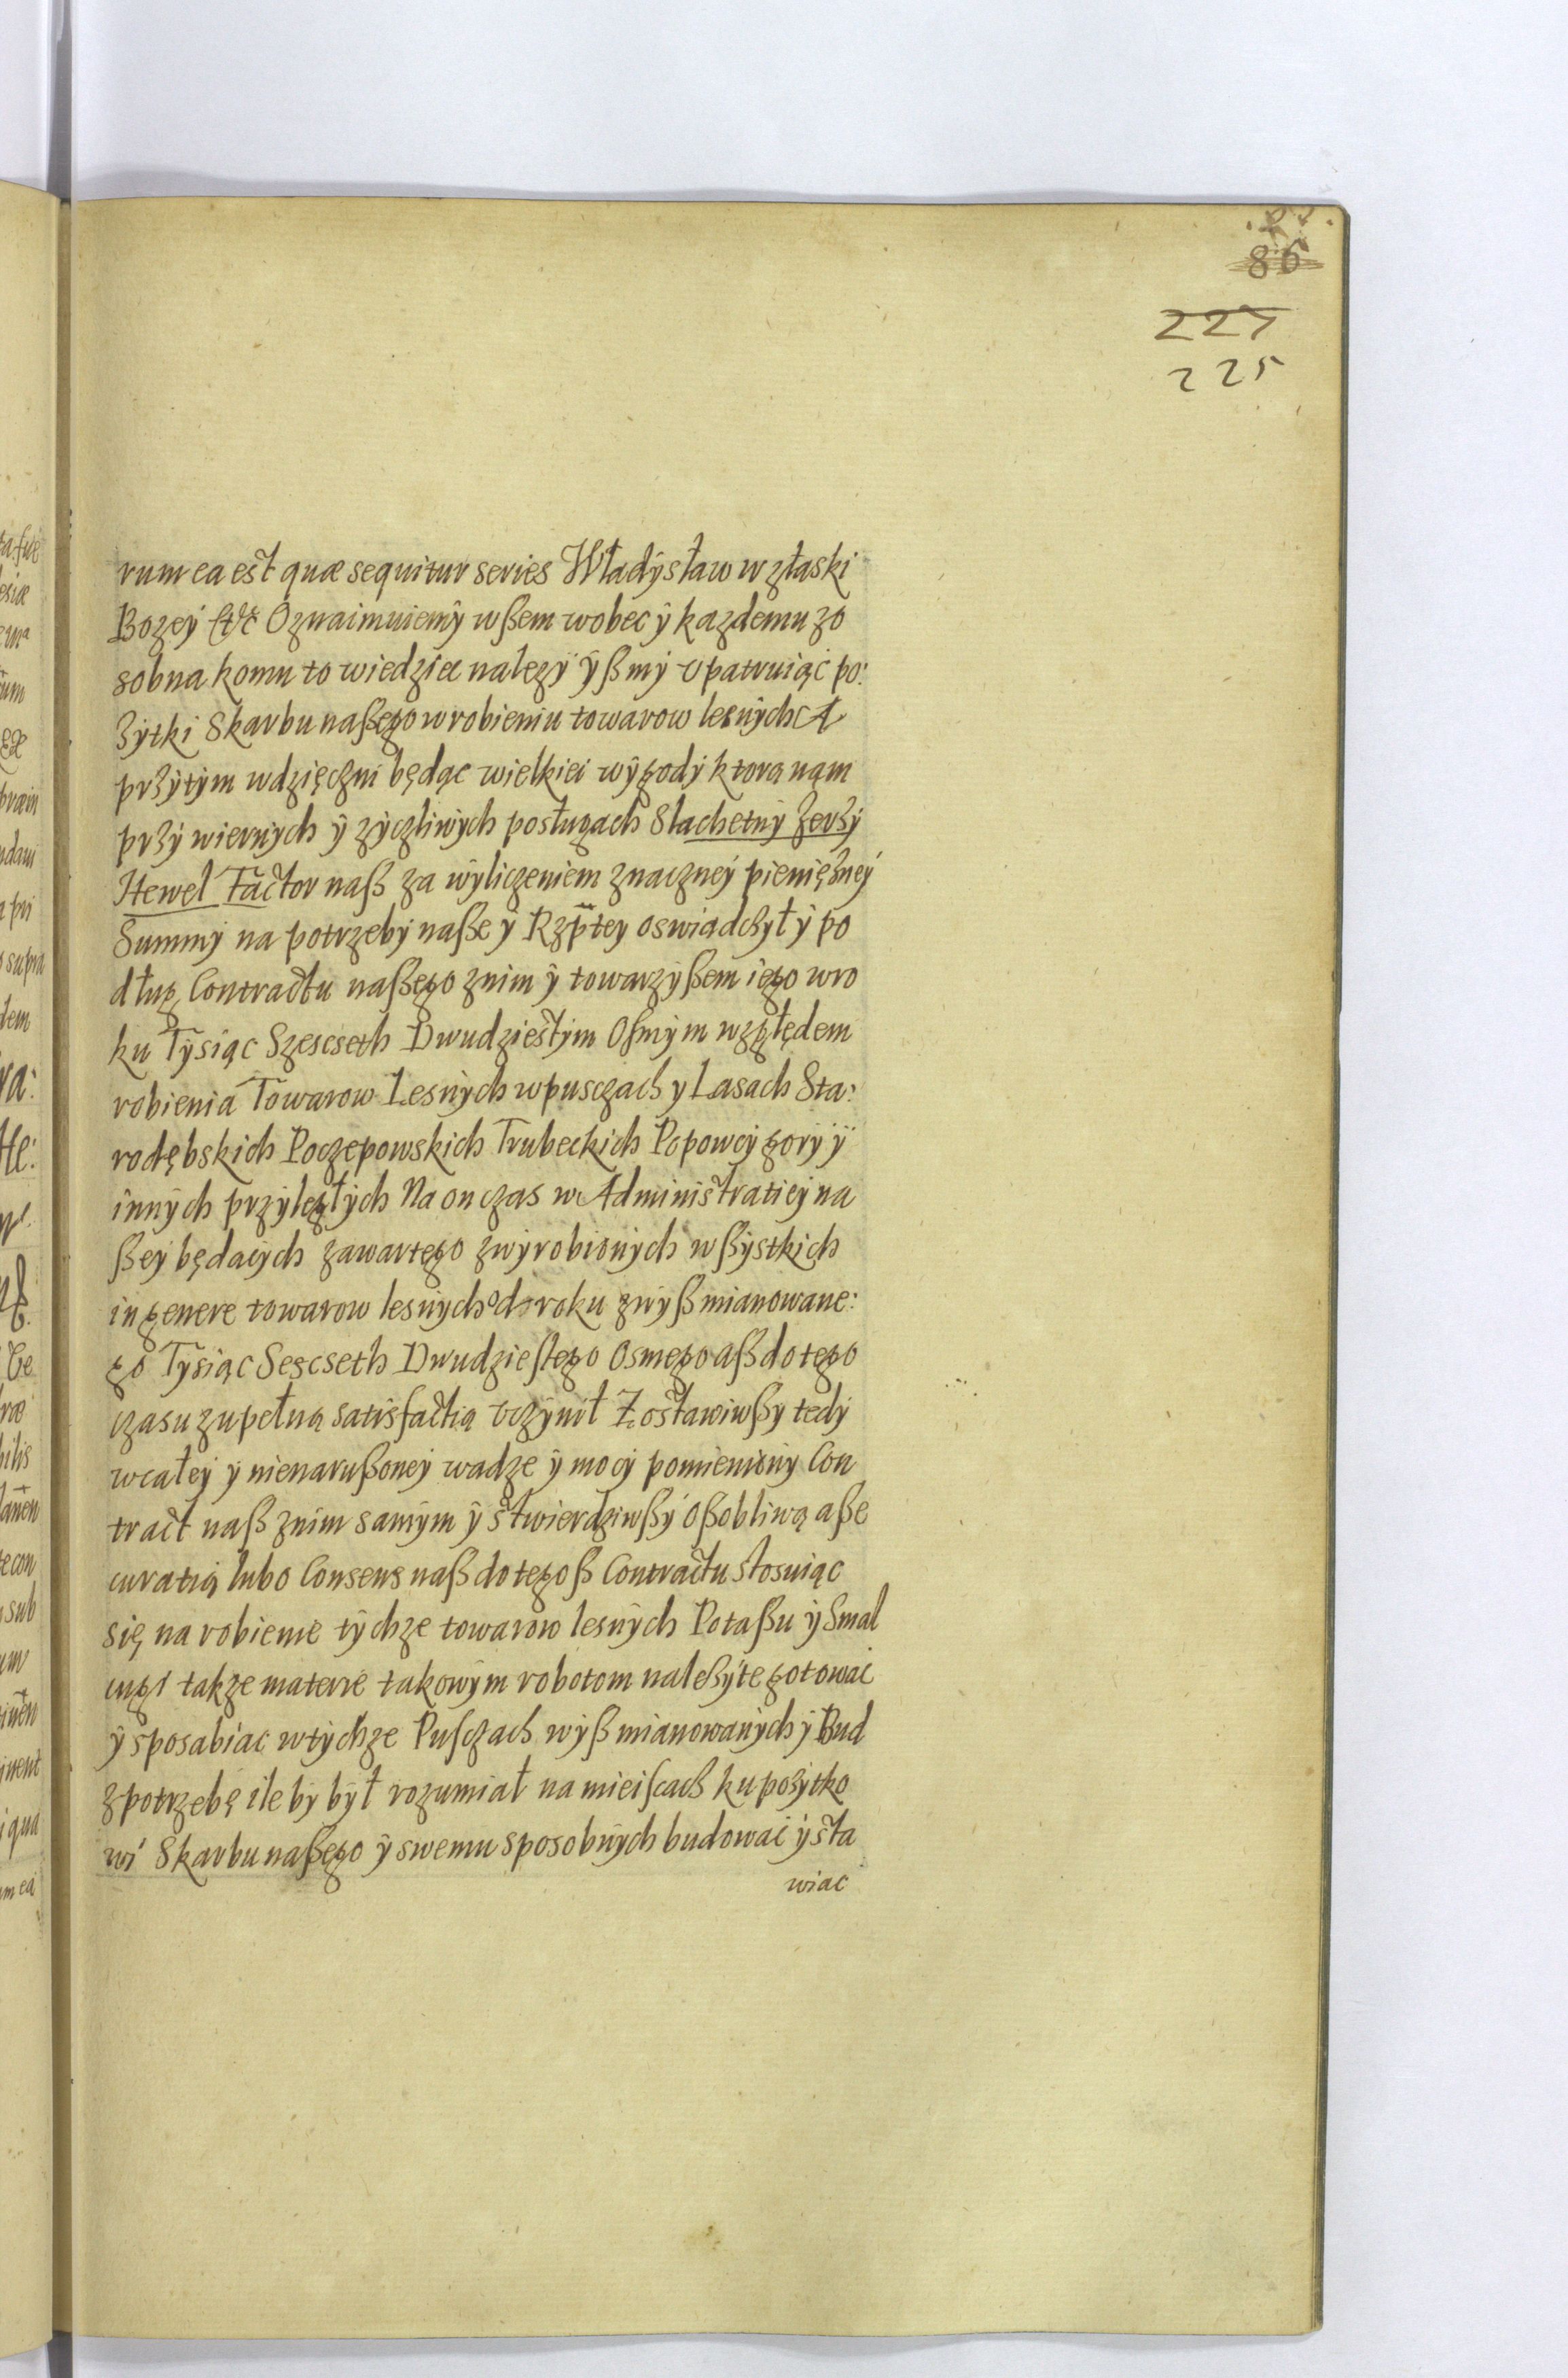 86
227
225
rum ea est quæ sequitur series Władysław w złaski
Bozey &c Oznaimuiemy wßem wobec y kazdemu zo
sobna komu to wiedziec nalezy yßmy upatruiąc po:
żytki Skarbu naßego w robieniu towarow lesnych A
przytym wdzięczni będąc wielkiei wygody ktorą nąm
przy wiernych y zyczliwych posługach Slachetny Jerzy
Hewel Factor naß za wyliczeniem znaczney pieniężney
Summy na potrzeby naße y Rzptey oswiadczył y po
dług Contractu naßego znim y towarzyßem iego wro
ku Tysiąc Szescseth Dwudziestym Osmym względem
robienia Towarow Lesnych wpusczach y Lasach Sta:
rodębskich Poczepowskich Trubeckich Popowey gory y
innych przyległych Na on czas w Administratiey na
ßey będacych zawartego zwyrobionych wßystkich
in genere towarow lesnych od roku zwyß mianowane:
go Tysiąc Sescseth Dwudziestego Osmego aß do tego
czasu zupełną satisfactią uczynił Zostawiwßy tedy
wcałey y nienarußoney wadze y mocy pomieniony Con
tract naß znim samym y stwierdziwßy oßobliwą aße
curatią lubo Consens naß do tegoß Contractu stosuiąc
się na robienie tychze towarow lesnych Potaßu y Smal
cugi takze materie takowym robotom należyte gotowac
y sposabiac wtychze Pusczach wyß mianowanych y Bud
zpotrzebę ile by był rozumiał na mieiscach ku pożytko
wi Skarbu naßego y swemu sposobnych budowac y sta
wiac